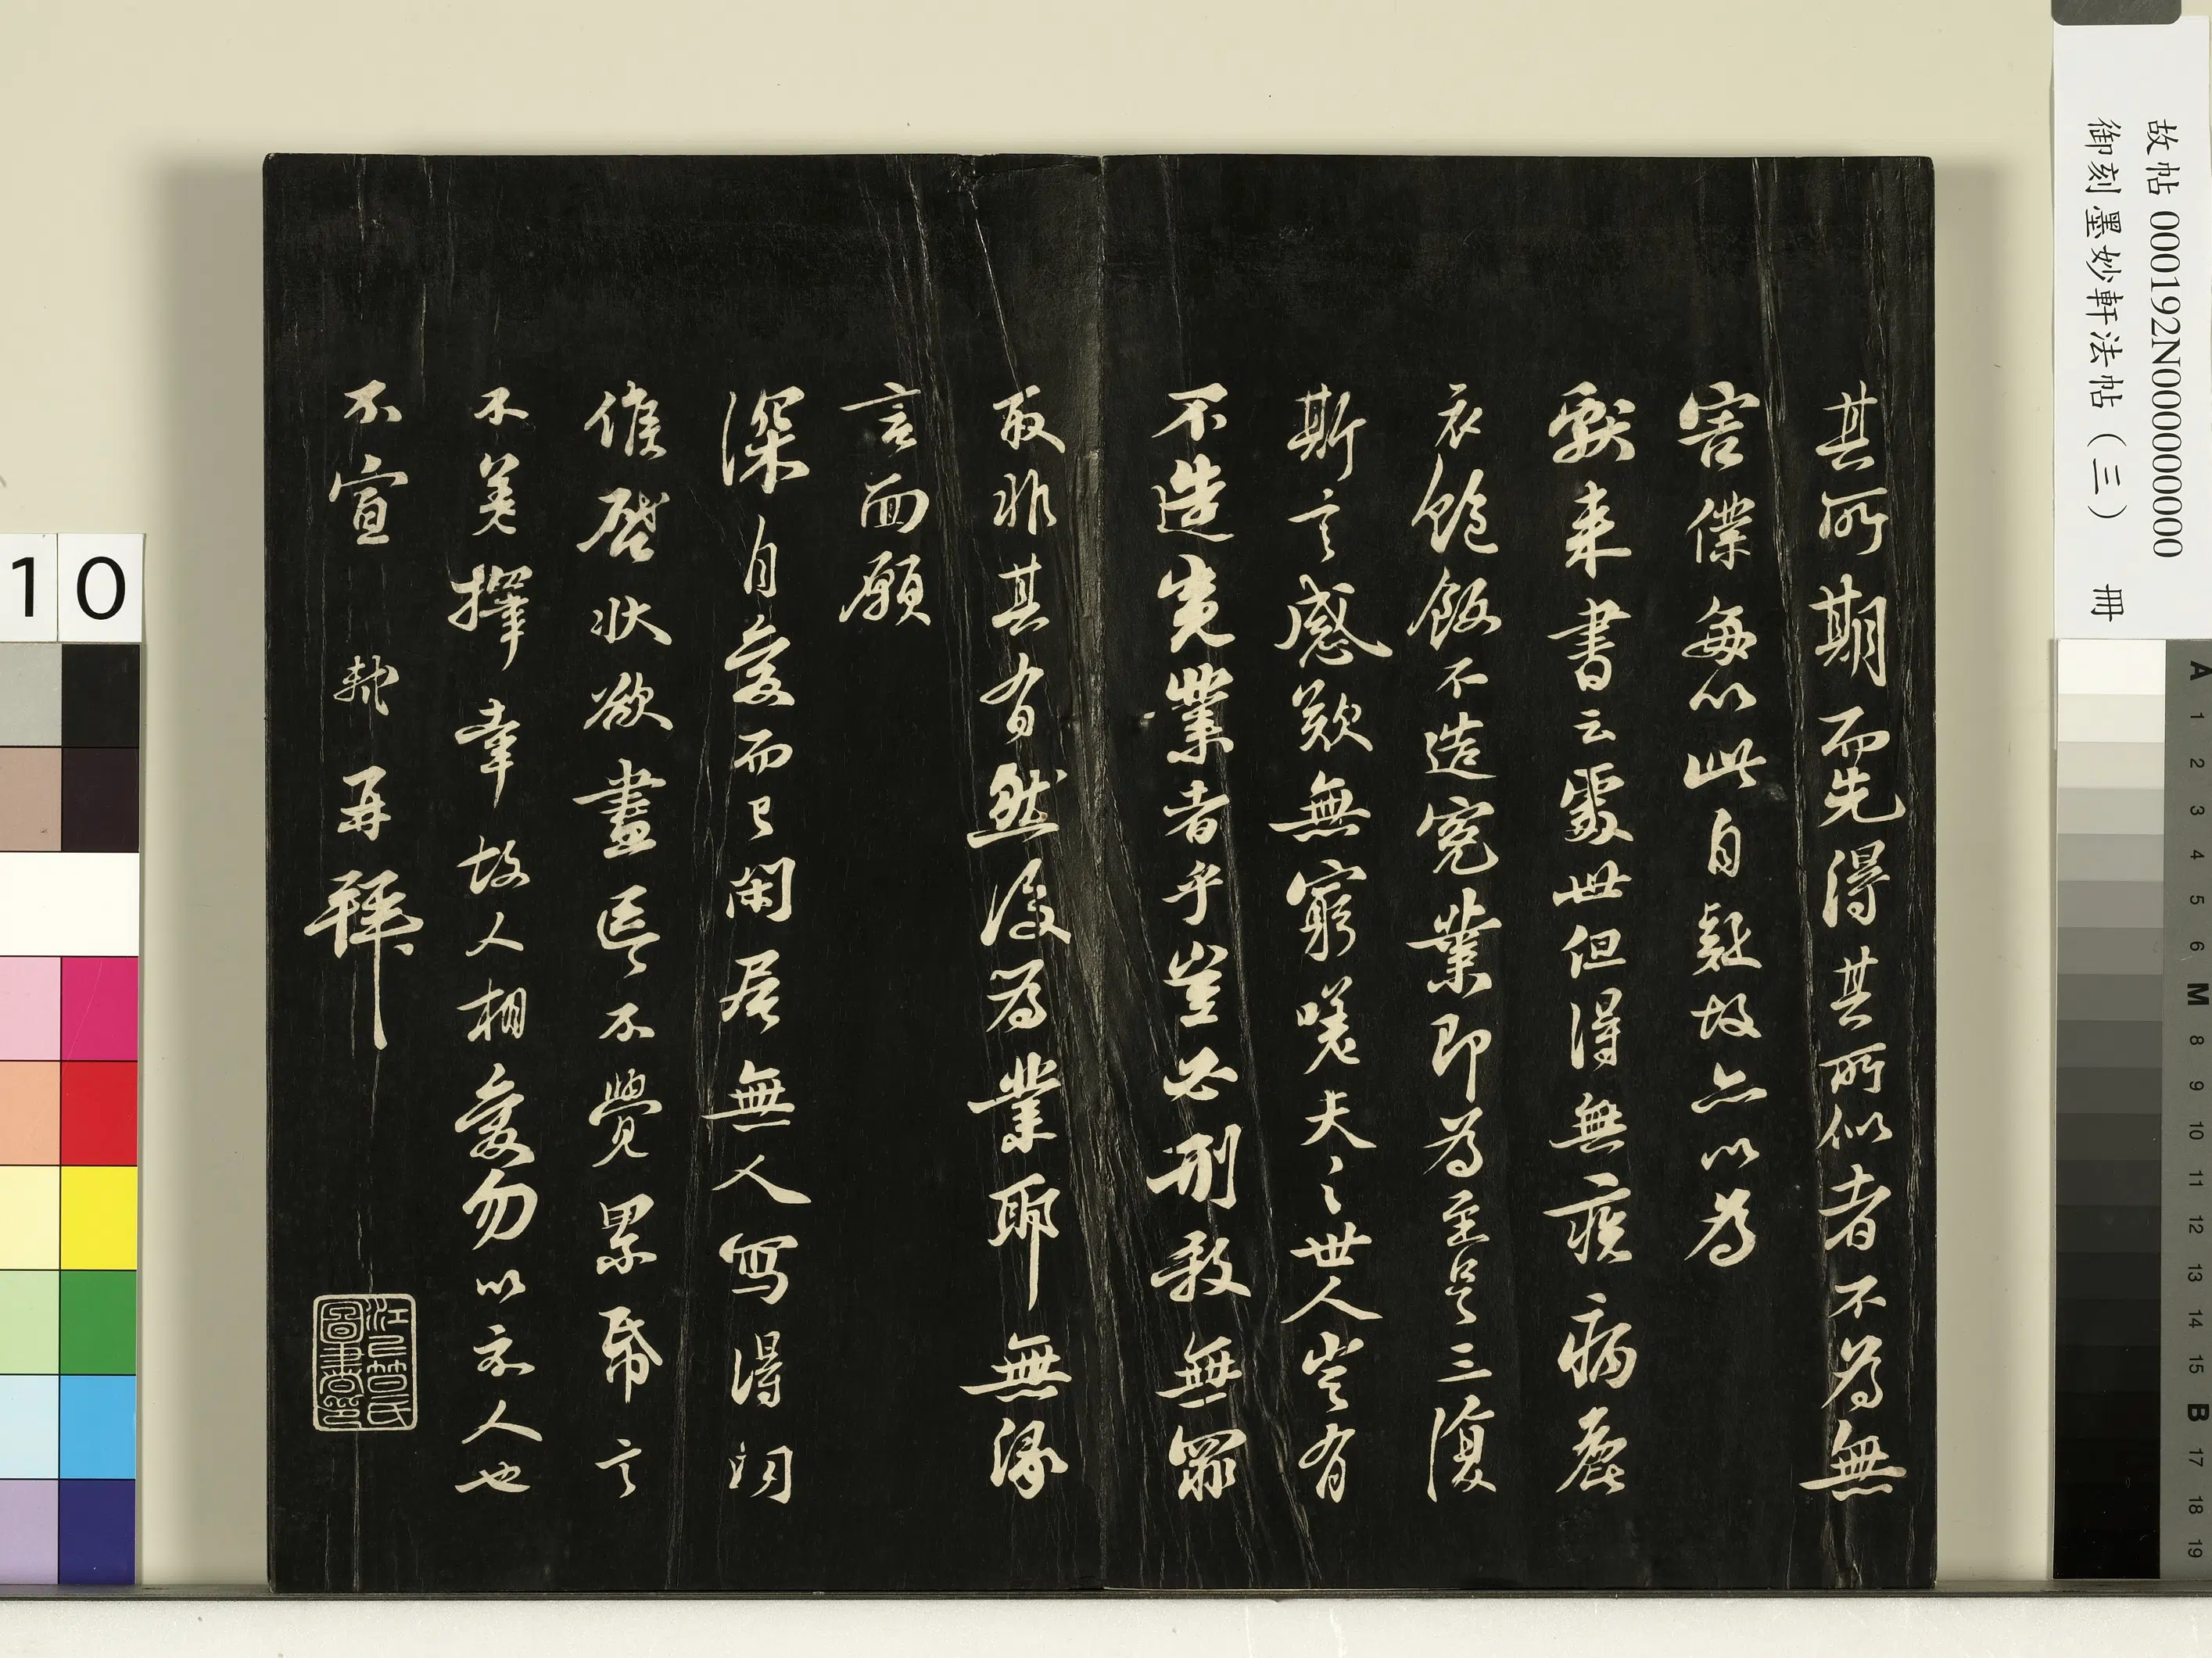 其所期而先得其所似者不為無
害僕每以此自疑故亦以為
獻来書云處世但得無疾病麁
衣飽飯不造寃業即為至足三復
斯言感歎無窮嗟夫〻世人豈有
不造寃業者乎豈必刑殺無罪
取非其有然後為業耶無緣
言面願
深自愛而已閑居無人寫得詞
候啓狀欲盡區〻不覺累帋言
不擇幸故人相愛勿以示人也
不宣 軾再拜
江上笪氏圖書印
故帖 000192N000000000
御刻墨妙軒法帖（三） 冊
10
A 1 2 3 4 5 6 M 8 9 10 11 12 13 14 15 B 17 18 19